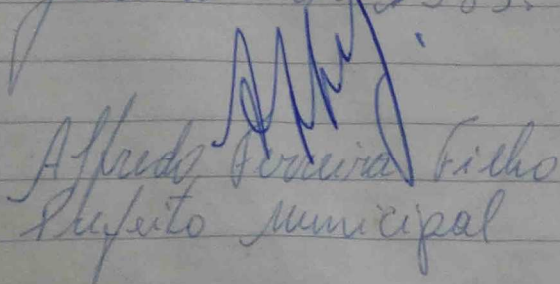 Alfredo Ferreira Filho
Prefeito Municipal